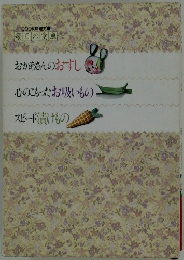 おかあさんのおすし
心のこもったお吸いもの
スピード漬けもの